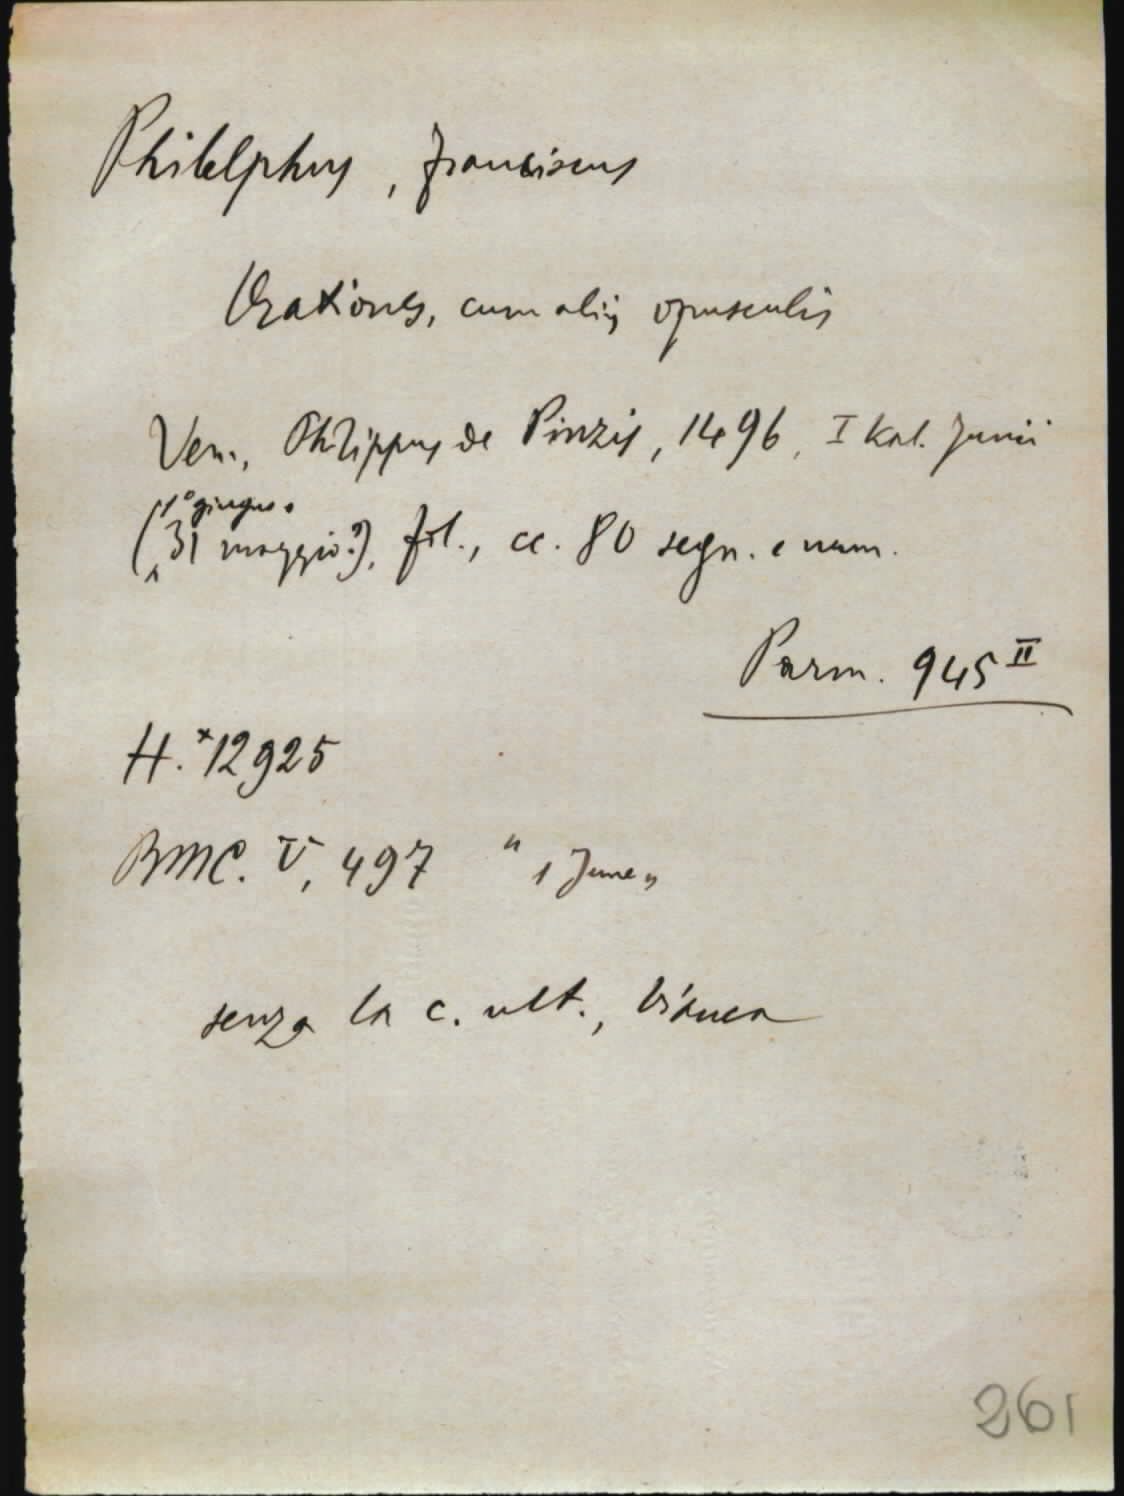 Philelphus, Franciscus
Orationes, cum aliis opusculis
Ven., Philippus de Pinzis, 1496, I kal. Junii
1° giugno o
(31 maggio?), fol., cc. 80 segn. e num.
Parm. 945 II
H. *12925
BMC. V, 497 " 1 June "
senza la c. ult., bianca
261